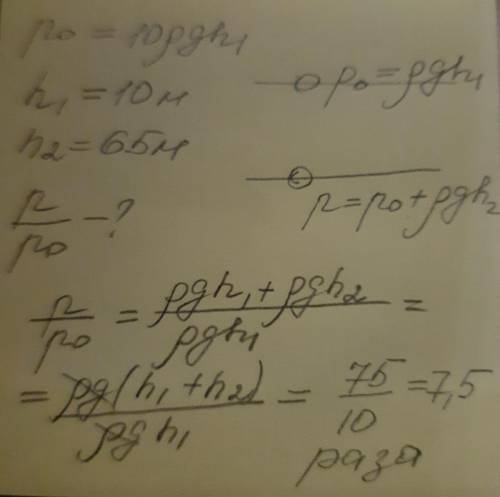 p₀ = 10ρgh₁
h₁ = 10 м
h₂ = 65 м
p₀ = ρgh₁
p/p₀ - ?
p = p₀ + ρgh₂
p/p₀ = (ρgh₁ + ρgh₂)/ρgh₁ =
= ρg(h₁ + h₂)/ρgh₁ = 75/10 = 7,5
раза